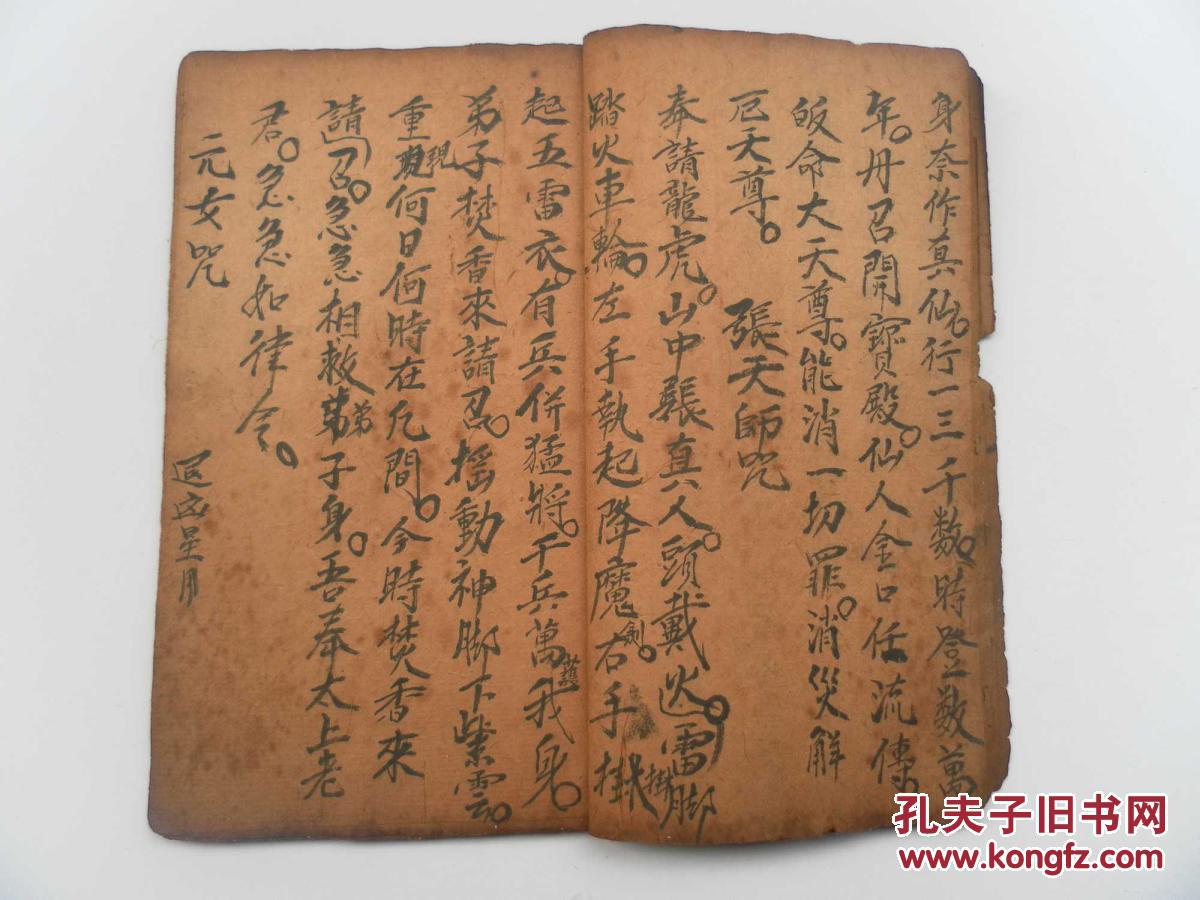 身奈作真仙。行一三千数。時登数萬
年。丹召開寶殿。仙人金口任流傳。
皈命大天尊。能消一切罪。消災解
厄天尊。 張天師咒
奉請龍虎。山中張真人。頭戴火。雷脚
踏火車輪。左手執起降魔劍。右手掛
起五雷衣。有兵併猛將。千兵萬護我身。
弟子焚香來請召。摇動神脚下紫雲。
重現現何日何時在凢間。今時焚香來
請召。急急相救弟弟子身。吾奉太上老
君。急急如律令。
元女咒
星月
孔夫子旧书网
www.kongfz.com